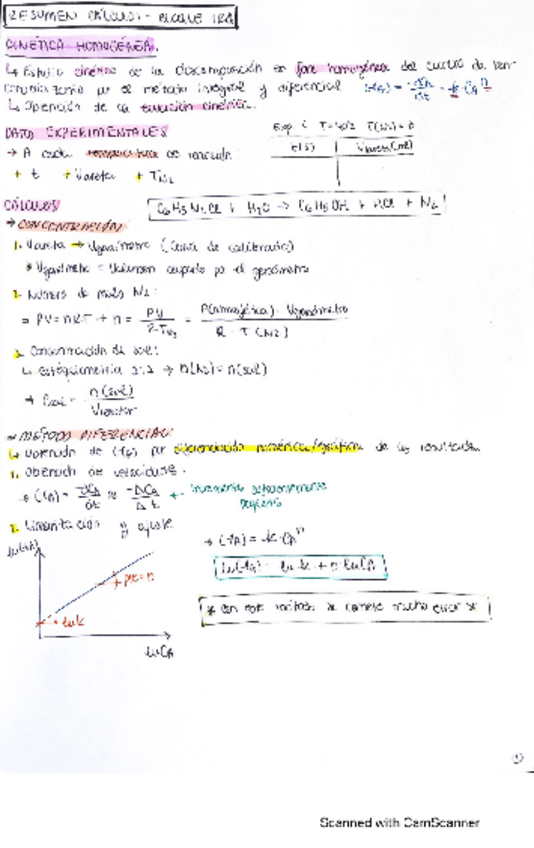 RESUMEN CÁLCULOS - BLOQUE IRA
CINÉTICA HOMOGÉNEA.
↳ Estudio cinético de la descomposición en fase homogénea del cloruro de ben-
por el método integral y diferencial (-rA) = -dCA/dt = k·CAⁿ
↳ Obtención de la ecuación cinética.
DATOS EXPERIMENTALES
→ A cada temperatura de
+ t + Vbureta + TN2
t(s) Vbureta(ml)
CÁLCULOS
C6H5N2Cl + H2O → C6H5OH + HCl + N2
→ CONCENTRACIÓN
1. Vbureta → Vgasómetro (curva de calibrado)
* Vgasómetro = Volumen ocupado por el gasómetro
2. Número de moles N2:
= PV = nRT → n = PV/R·TN2 = P(atmosférica)·Vgasómetro/R·T(N2)
3. Concentración de sal:
↳ Estequiometría 1:1 → n(N2) = n(sal)
→ Csal = n(sal)/Vreactor
→ MÉTODO DIFERENCIAL
↳ Obtención de (-rA) por diferenciación numérica/gráfica de los resultados
1. Obtención de velocidades.
→ (-rA) = -dCA/dt ≈ -ΔCA/Δt ← incrementos suficientemente pequeños
2. Linealización y ajuste
→ (-rA) = k·CAⁿ
ln(-rA) = ln k + n lnCA
ln(-rA)
pte = n
ln k
lnCA
* Con este método se comete mucho error *
Scanned with CamScanner